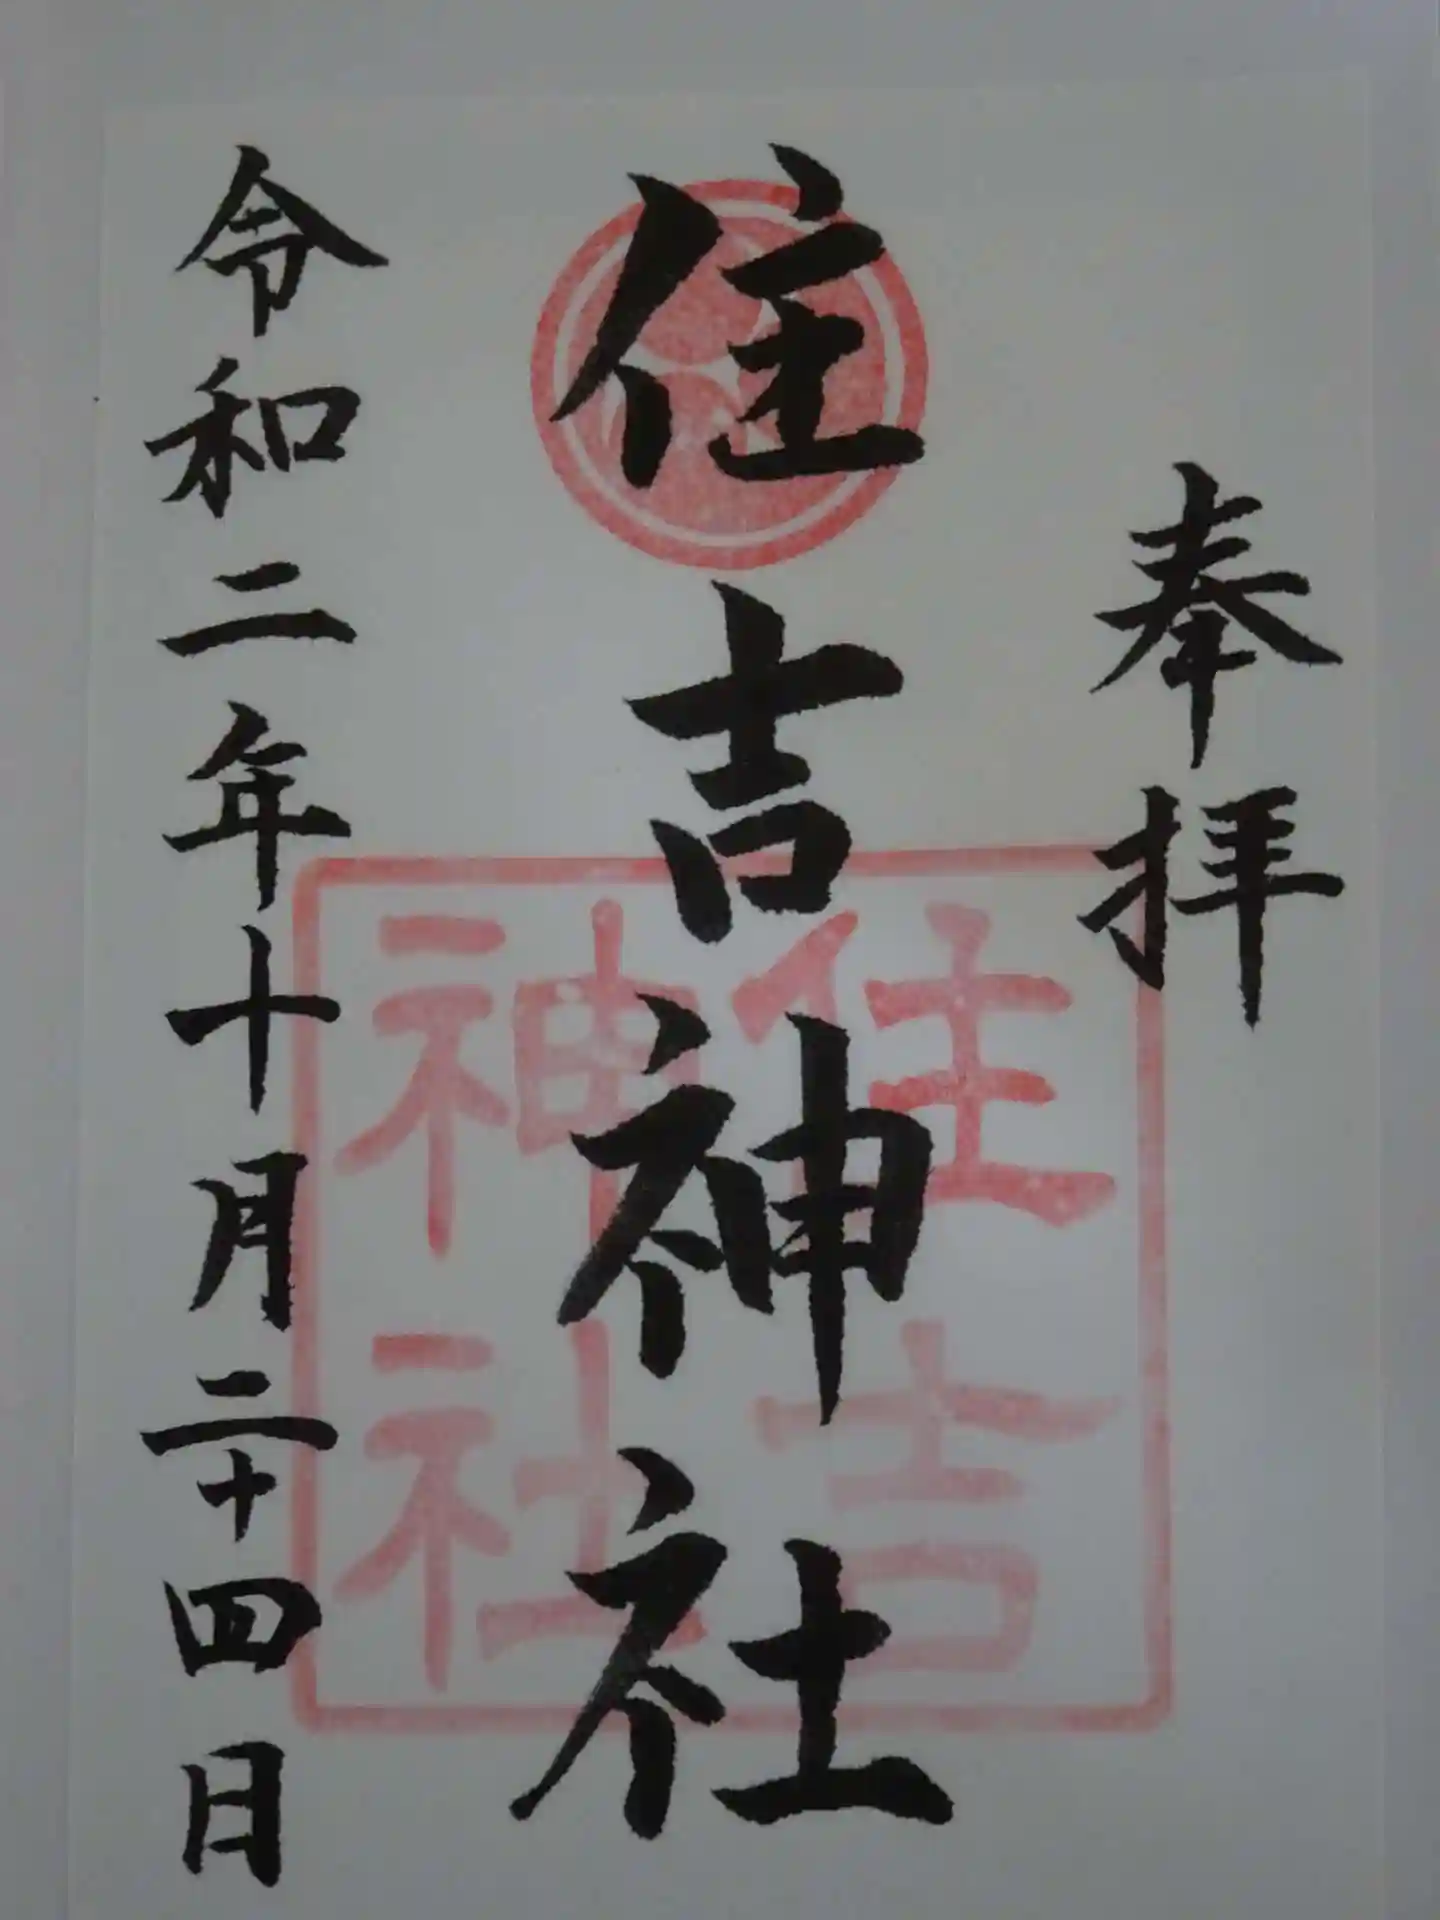 奉拝
住吉神社
令和二年十月二十四日
住吉
神社